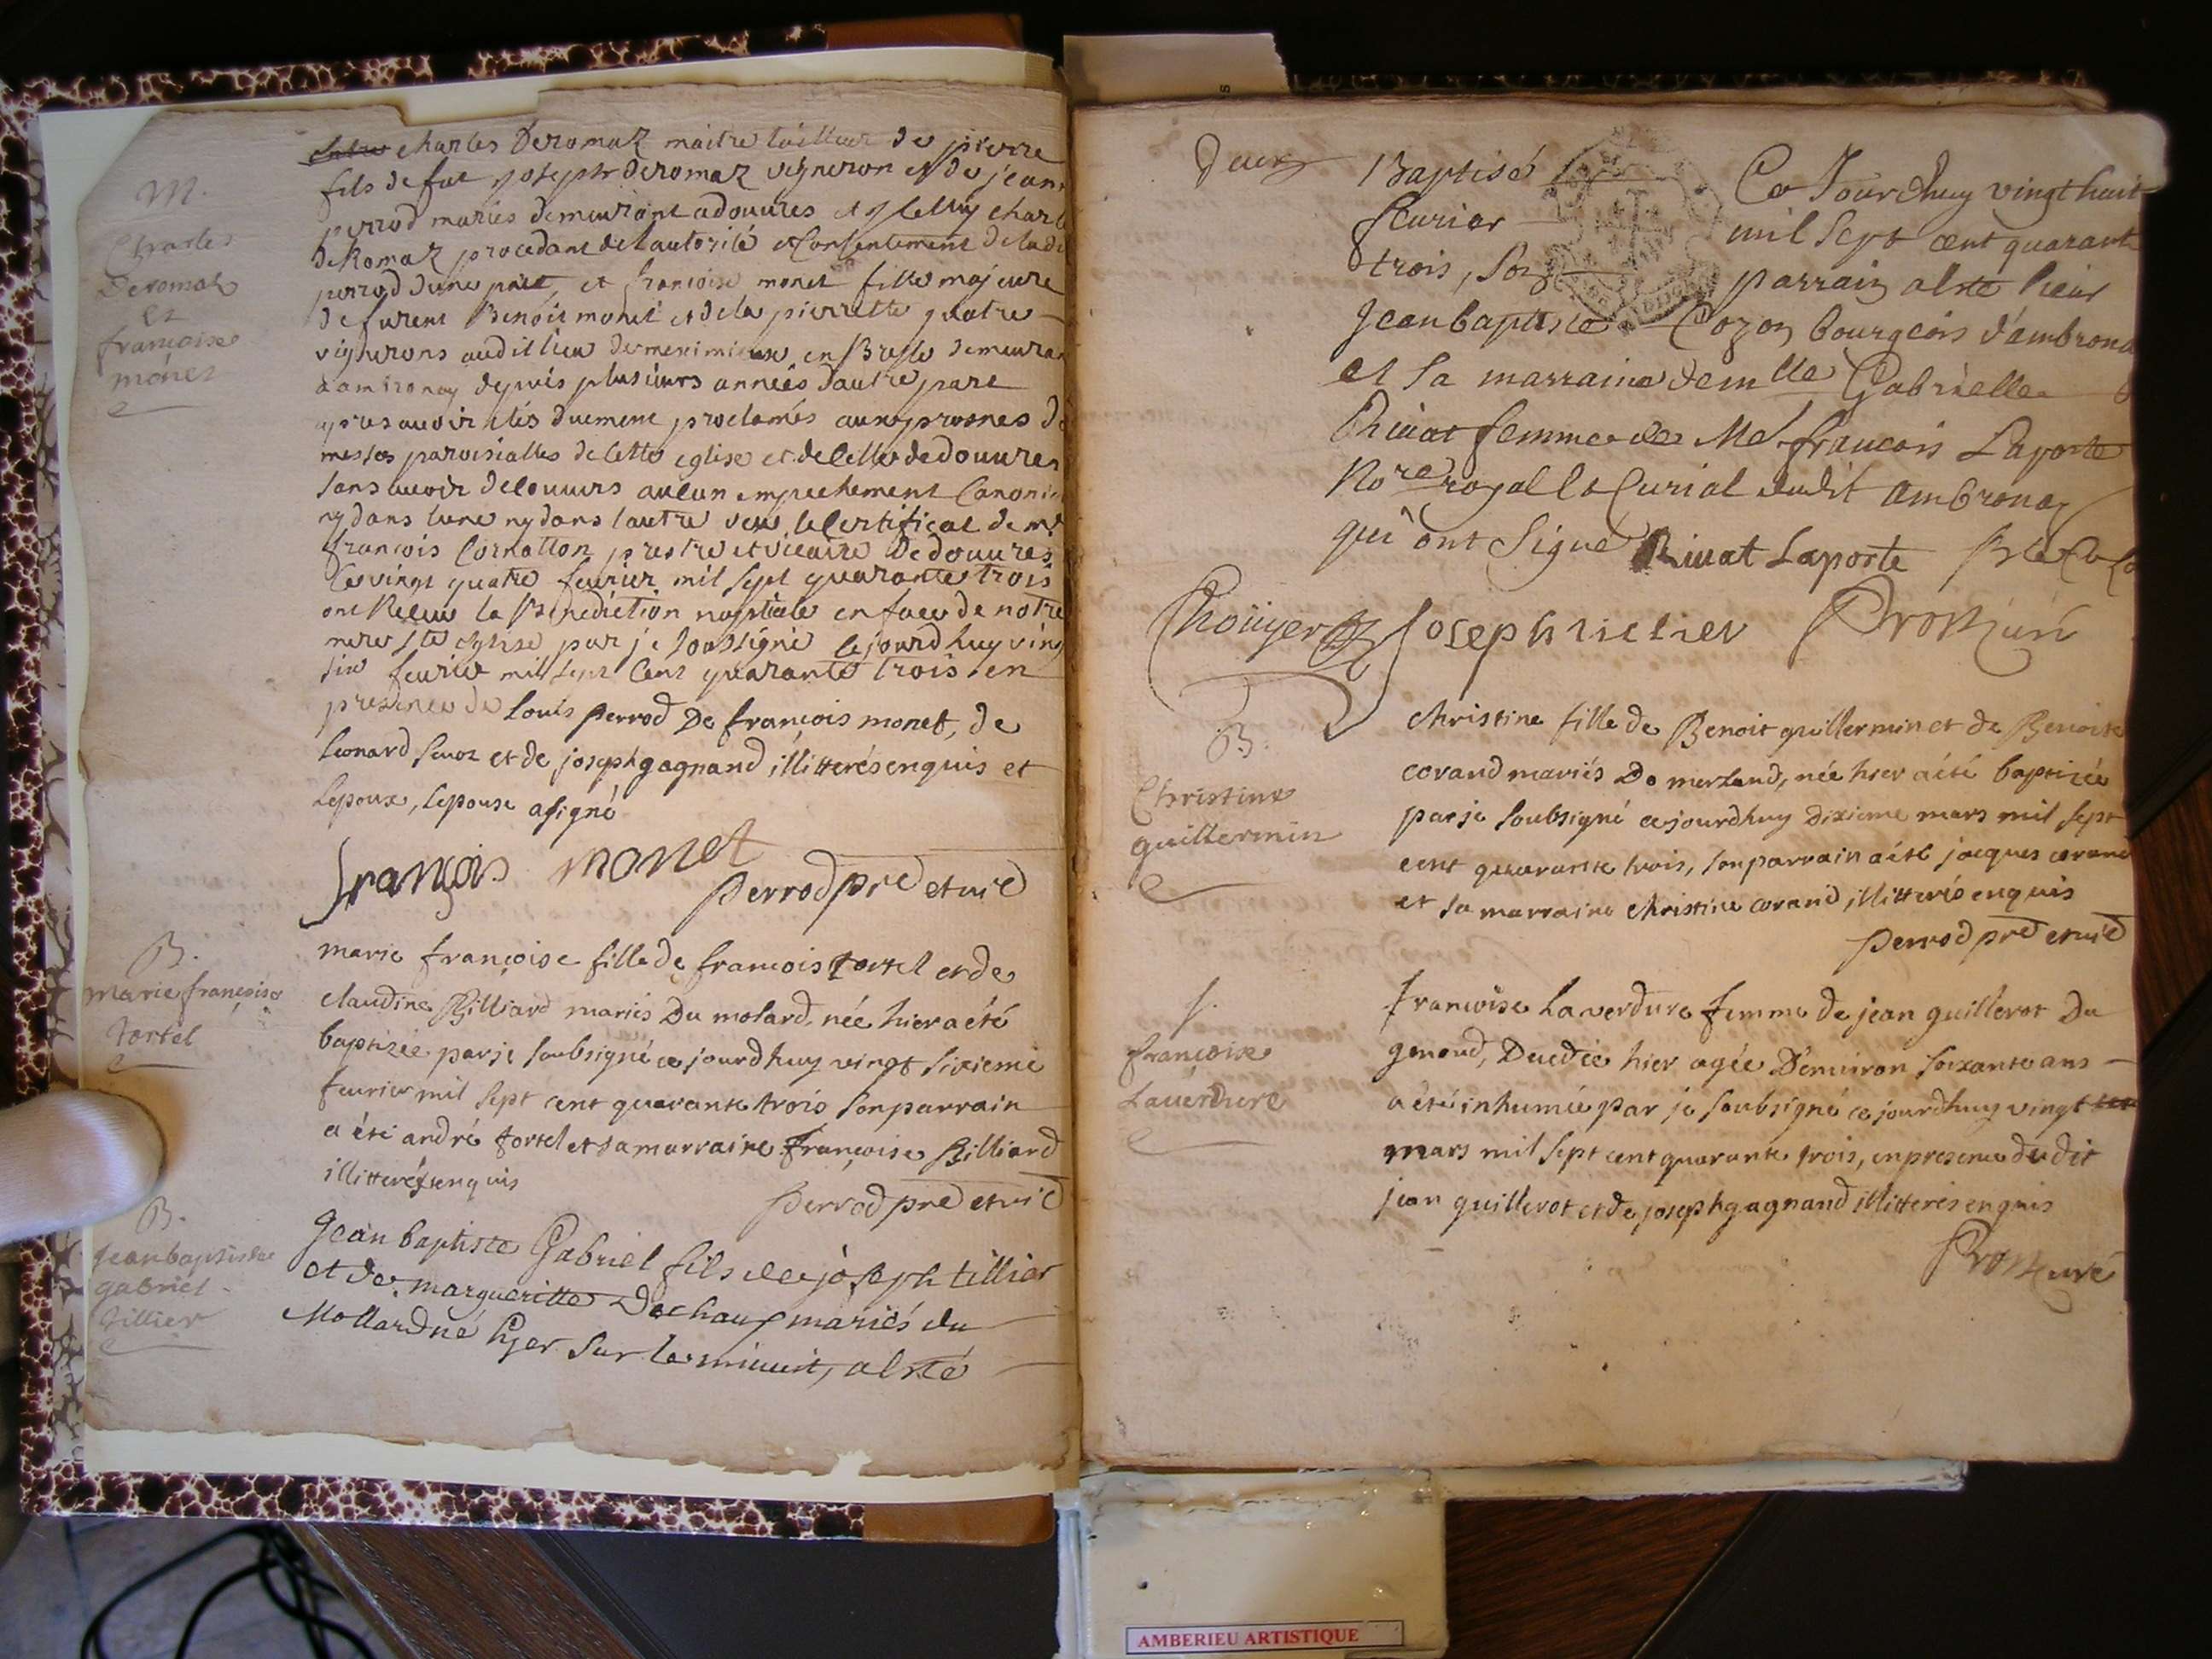 M.
Charles
Deromaz
et
francoise
mónet
charles Deromaz maitre tailleur de pierre
fils de feu joseph deromaz vigneron et de jeann
perrod mariés demeurant a douures et Celluy charle
deRomaz procedant de l'autorité et Consentement de ladi
perrod d'une part, et francoise monet fille majeure
de furent Benoit monet et de la pierrette quatre
vignerons audit lieu de meximieux en Bresse demeuran
a ambronay depuis plusieurs années d'autre part
apres auoir étés duement proclamés aux prosnes de
messes paroissialles de cette eglise et de celle de douures
sans auoir decouuers aucun empechement Canoni
ny dans l'une ny dans l'autre veu le Certificat de mr
françois Cornatton prestre et vicaire de douures
le vingt quatre feurier mil sept quarante trois
ont Receu la Benediction nuptiale en face de notre
mere ste eglise par je soussigné cejourdhuy vingt
six feurier mil sept Cent quarante trois en
presence de Louis perrod De françois monet, de
Leonard et de joseph gagnand illitterés enquis et
l'epoux, l'epouse a signé
françois monet
perrod pre et vic
B.
marie françoise
tortel
marie françoise fille de francois tortel et de
claudine Billiard mariés Du molard, née hier a été
baptizée par je soubsigné ce jourdhuy vingt sixieme
feurier mil sept cent quarante trois son parrain
a été andré tortel et sa marraine françoise Billiard
illitterés enquis
perrod pre et vic
B.
jean baptiste
gabriel
tillier
Jean baptiste Gabriel fils de joseph tillier
et de margueritte Dechaux mariés du
Mollard né hier sur la minuit, a esté
deux
Baptisé Ce Jourdhuy vingt huit
feurier mil sept cent quarante
trois, son parrain a esté sieur
Jean baptiste Cozon bourgeois d'ambrona
et sa marraine demlle Gabrielle
Riuat femme de Me francois Laporte
Nore royal et Curial dudit ambronay
qui ont signé Riuat Laporte
Joseph tillier
Bros curé
B.
Christine
guillermin
christine fille de Benoit guillermin et de Benoite
corand mariés De merland, née hier a été baptizée
par je soubsigné ce jourdhuy dixieme mars mil sept
cent quarante trois, son parrain a été jacques corand
et sa marraine christine corand, illitterés enquis
perrod pre et vic
f.
françoise
Lauerdure
francoise Laverdure femme de jean guillerot Du
genoud, Decedée hier agée D'enuiron soixante ans
a été inhumée par je soubsigné ce jourdhuy vingt
mars mil sept cent quarante trois, en presence dudit
jean guillerot et de joseph gagnand illitterés enquis
Bros curé
AMBERIEU ARTISTIQUE